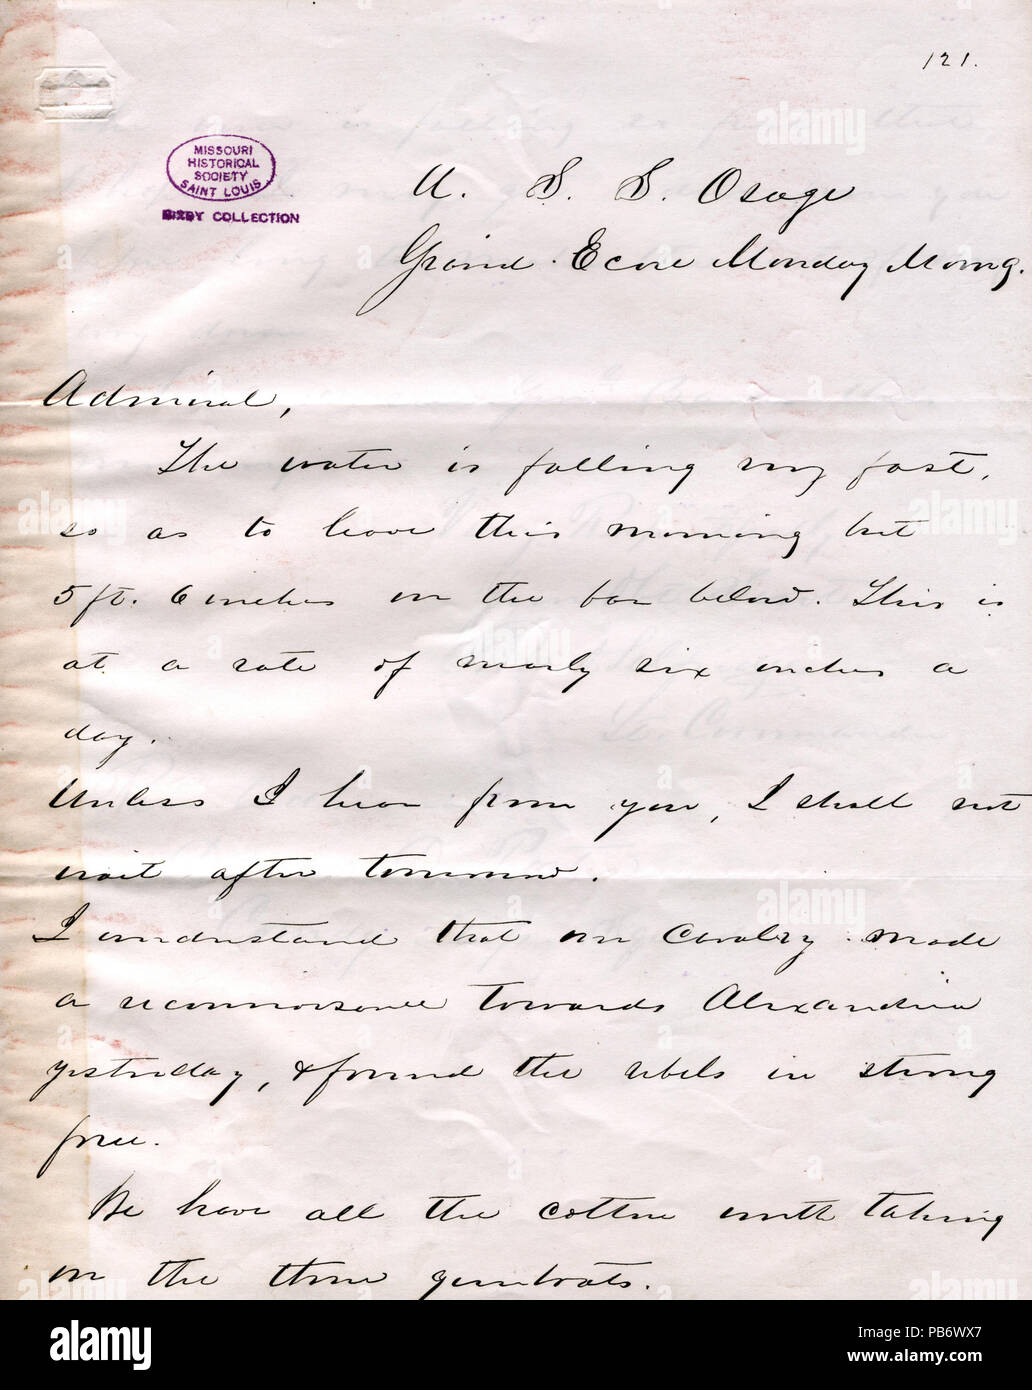 121.
MISSOURI
HISTORICAL
SOCIETY
SAINT LOUIS
BIXBY COLLECTION
U. S. S. Osage
Grand Ecore Monday Morng.
Admiral,
The water is falling very fast,
so as to leave this morning but
5 ft. 6 inches on the bar below. This is
at a rate of nearly six inches a
day.
Unless I hear from you, I shall not
wait after tomorrow.
I understand that our Cavalry made
a reconnoisance towards Alexandria
yesterday, & found the rebels in strong
force.
We have all the cotton worth taking
on the three gunboats.
alamy
Image ID: PB6WX7
www.alamy.com